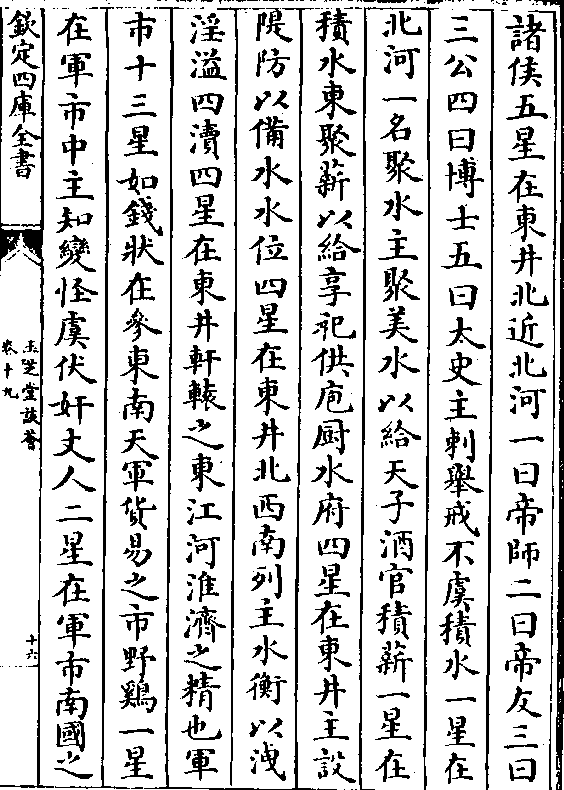 諸侯五星在東井北近北河一曰帝師二曰帝友三曰
三公四曰博士五曰太史主刺舉戒不虞積水一星在
北河一名聚水主聚美水以給天子酒官積薪一星在
積水東聚薪以給享祀供庖厨水府四星在東井主設
隄防以備水水位四星在東井北西南列主水衡以洩
淫溢四瀆四星在東井軒轅之東江河淮濟之精也軍
市十三星如錢狀在參東南天軍貨易之市野鷄一星
在軍市中主知變怪虞伏奸丈人二星在軍市南國之
欽定四庫全書
玉芝堂談薈
卷十九
十六